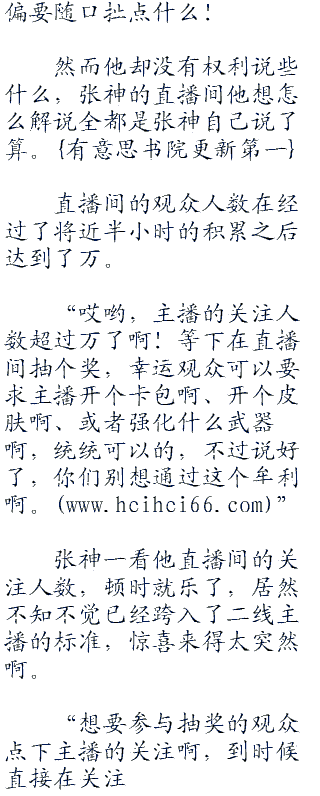 偏要随口扯点什么！
然而他却没有权利说些
什么，张神的直播间他想怎
么解说全都是张神自己说了
算。{有意思书院更新第一}
直播间的观众人数在经
过了将近半小时的积累之后
达到了万。
“哎哟，主播的关注人
数超过万了啊！等下在直播
间抽个奖，幸运观众可以要
求主播开个卡包啊、开个皮
肤啊、或者强化什么武器
啊，统统可以的，不过说好
了，你们别想通过这个牟利
啊。(www.hcihci66.com)”
张神一看他直播间的关
注人数，顿时就乐了，居然
不知不觉已经跨入了二线主
播的标准，惊喜来得太突然
啊。
“想要参与抽奖的观众
点下主播的关注啊，到时候
直接在关注